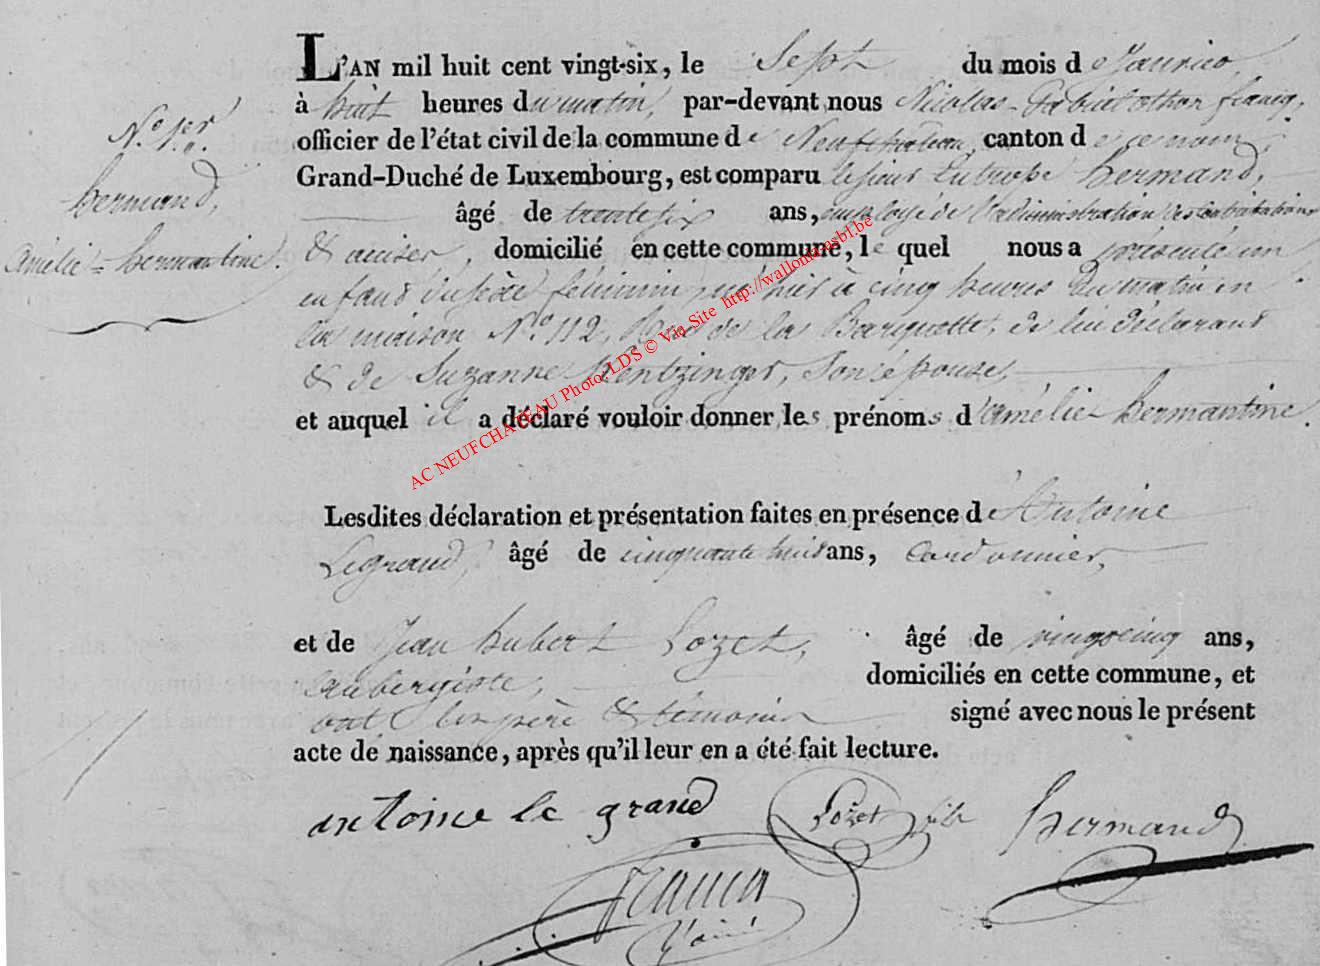 L'AN mil huit cent vingt-six, le Sept du mois de Janvier,
à huit heures du matin, par-devant nous Nicolas
officier de l'état civil de la commune de Neufchateau, canton de ce nom,
Grand-Duché de Luxembourg, est comparu le sieur Eutrope hermand,
âgé de trente six ans, employé de l'administration des Contributions
& accises, domicilié en cette commune, le quel nous a présenté un
enfant du sexe féminin, né hier à cinq heures du matin en
la maison N.o 112, Rue de la , de lui déclarant
& de Suzanne , son épouse,
et auquel il a déclaré vouloir donner les prénoms d'amélie hermantine.
N.o 1.er
hermand,
Amélie = hermantine.
Lesdites déclaration et présentation faites en présence d'Antoine
Legrand, âgé de cinquante huit ans, Cordonnier,
et de Jean hubert Lozet, âgé de vingt cinq ans,
aubergiste, domiciliés en cette commune, et
ont les père & témoins signé avec nous le présent
acte de naissance, après qu'il leur en a été fait lecture.
antoine le grand Lozet fils hermand
l'ainé
AC NEUFCHATEAU Photo LDS © Via Site http://wallonia-asbl.be